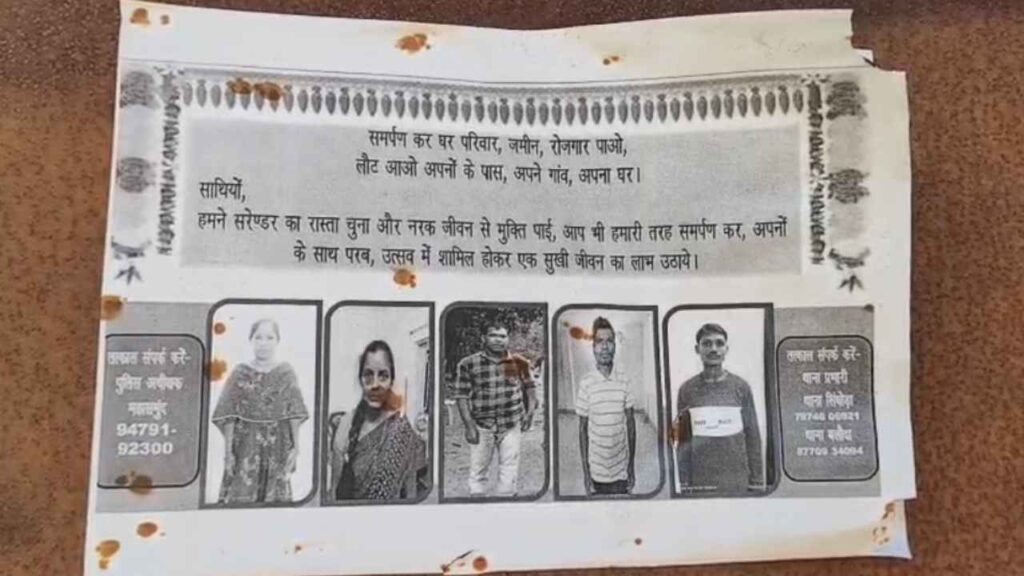 समर्पण कर घर परिवार, जमीन, रोजगार पाओ,
लौट आओ अपनों के पास, अपने गांव, अपना घर।
साथियों,
हमने सरेण्डर का रास्ता चुना और नरक जीवन से मुक्ति पाई, आप भी हमारी तरह समर्पण कर, अपनों
के साथ परब, उत्सव में शामिल होकर एक सुखी जीवन का लाभ उठाये।
तत्काल संपर्क करें-
पुलिस अधीक्षक
महासमुंद
94791-
92300
तत्काल संपर्क करें-
थाना प्रभारी
थाना सिंघोड़ा
थाना बलौदा